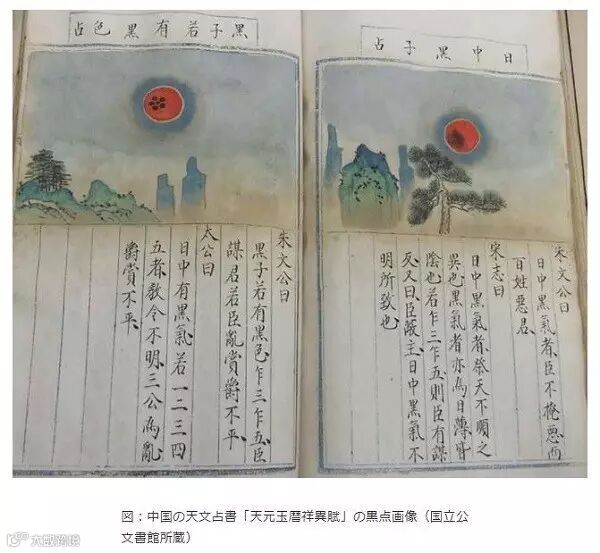 日中黑子占
朱文公曰
日中黑氣者臣不掩惡而
百姓惡君
宋志曰
日中黑氣者祭天不順之
異也黑氣者亦為日薄皆
陰也若乍三乍五則臣有謀
死又曰臣蔽主日中黑氣不
明所致也
黑子若有黑色占
朱文公曰
黑子若有黑色乍三乍五臣
謀君若臣亂賞爵不平
太公曰
日中有黑氣若一二三四
五者教令不明三公為亂
爵賞不平
図：中国の天文占書「天元玉暦祥異賦」の黒点画像（国立公
文書館所蔵）